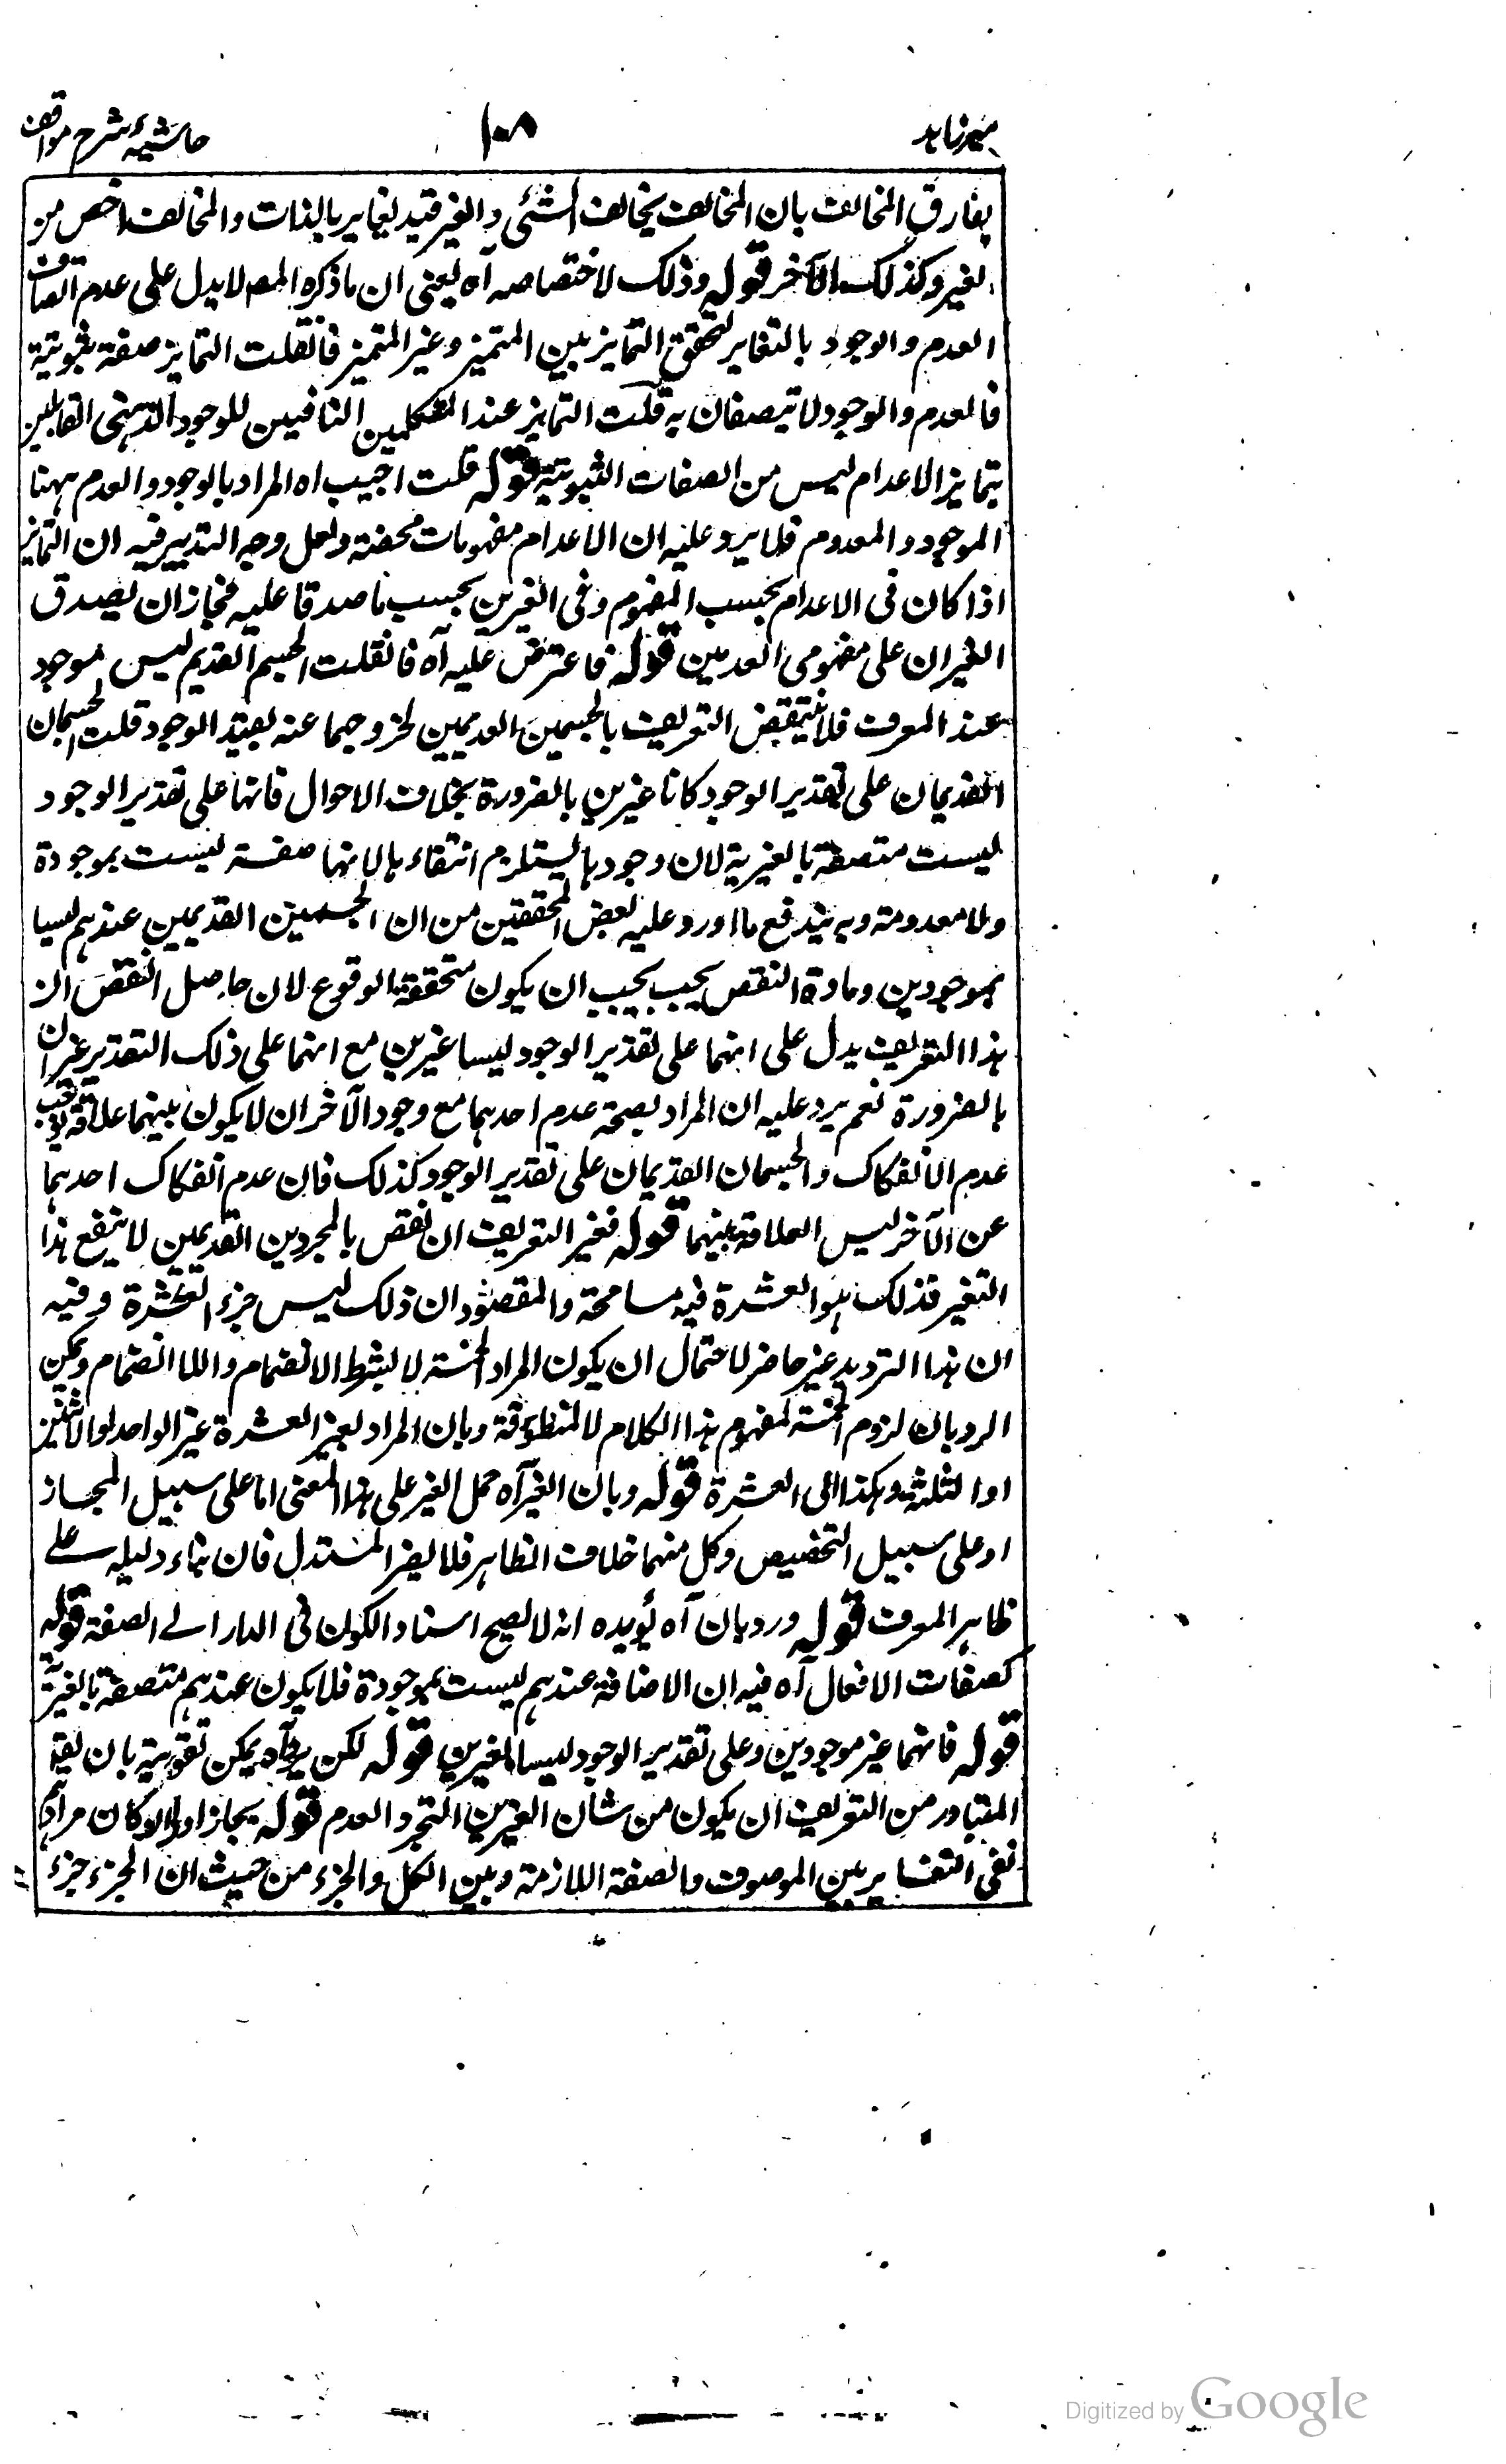 ميرزاهد
١٠٨
حاشيۂ شرح مواقف
يفارق المخالف بان المخالف يخالف الشئى والغير قيد يغاير بالذات والمخالف اخص من
الغير وكذلك الآخر قوله وذلك لاختصاصه آه يعنى ان ما ذكره المصـ لا يدل على عدم اتصاف
العدم والوجود بالتغاير لتحقق التمايز بين المتميز وغير المتميز فانقلت التمايز صفة ثبوتية
فالعدم والوجود لا يتصفان به قلت التمايز عند المتكلمين النافيين للوجود الذهنى القائلين
بتمايز الاعدام ليس من الصفات الثبوتية قوله قلت اجيب اه المراد بالوجود والعدم ههنا
الموجود والمعدوم فلا يرد عليه ان الاعدام مفهومات محضة ولعل وجه التدبير فيه ان التمايز
اذا كان فى الاعدام بحسب المفهوم وفى الغيرين بحسب ما صدقا عليه فجاز ان يصدق
الغيران على مفهومى العدمين قوله فاعترض عليه آه فانقلت الجسم القديم ليس موجود
عند المعرف فلا ينتقض التعريف بالجسمين العدميين لخروجهما عنه بقيد الوجود قلت الجسمان
القديمان على تقدير الوجود كانا غيرين بالضرورة بخلاف الاحوال فانها على تقدير الوجود
ليست متصفة بالغيرية لان وجودها يستلزم انتفاءها لانها صفة ليست بموجودة
ولا معدومة وبه يندفع ما اورد عليه بعض المحققين من ان الجسمين القديمين عندهم ليسا
بموجودين ومادة النقص يجب يجب ان يكون متحققة الوقوع لان حاصل النقض ان
هذا التعريف يدل على انهما على تقدير الوجود ليسا غيرين مع انهما على ذلك التقدير غيران
بالضرورة نعم يرد عليه ان المراد بصحة عدم احدهما مع وجود الآخر ان لا يكون بينهما علاقة توجب
عدم الانفكاك والجسمان القديمان على تقدير الوجود كذلك فان عدم انفكاك احدهما
عن الآخر ليس العلاقة بينهما قوله فغير التعريف ان نقض بالمجردين القديمين لا ينفع هذا
التغير قذلك هو العشرة فيه مسامحة والمقصود ان ذلك ليس جزء العشرة وفيه
ان هذا الترديد غير حاضر لاحتمال ان يكون المراد الخمسة لا بشرط الانضمام واللا انضمام ويمكن
الرد بان لزوم الخمسة لمفهوم هذا الكلام لا لمنطوقة وبان المراد بغير العشرة غير الواحد او الاثنين
او الثلثة وهكذا الى العشرة قوله وبان الغير آه حمل الغير على هذا المعنى اما على سبيل المجاز
او على سبيل التخصيص وكل منهما خلاف الظاهر فلا يضر المستدل فان بناء دليله على
ظاهر المعرف قوله ورد بان آه يؤيده انه لا يصح اسناد الكون فى الدار الى الصفة قوله
كصفات الافعال آه فيه ان الاضافة عندهم ليست بموجودة فلا يكون عندهم متصفة بالغيرية
قوله فانهما غير موجودين وعلى تقدير الوجود ليسا بغيرين قوله لكن يرد آه يمكن تقويته بان يقـ
المتبادر من التعريف ان يكون من شان الغيرين التجرد العدم قوله يجاز اولا لو كان مرادهم
نفى التغاير بين الموصوف والصفة اللازمة وبين الكل والجزء من حيث ان الجزء جزء
Digitized by Google